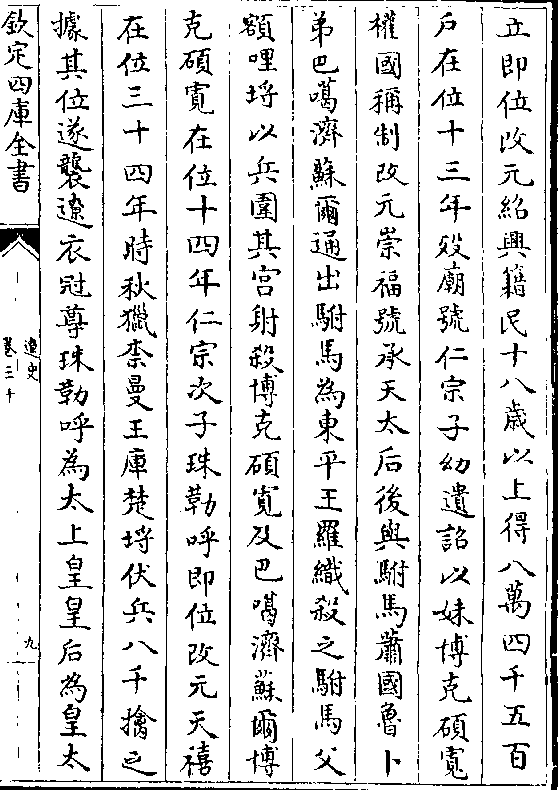 立即位改元紹興籍民十八歲以上得八萬四千五百
戸在位十三年殁廟號仁宗子幼遺詔以妹博克碩寬
權國稱制改元崇福號承天太后後與駙馬蕭國魯卜
弟巴噶濟蘇爾通出駙馬為東平王羅織殺之駙馬父
額哩埒以兵圍其宫射殺博克碩寬及巴噶濟蘇爾博
克碩寬在位十四年仁宗次子珠勒呼即位改元天禧
在位三十四年時秋獵柰曼王庫楚埒伏兵八千擒之
據其位遂襲遼衣冠尊珠勒呼為太上皇皇后為皇太
欽定四庫全書
遼史
卷三十
九